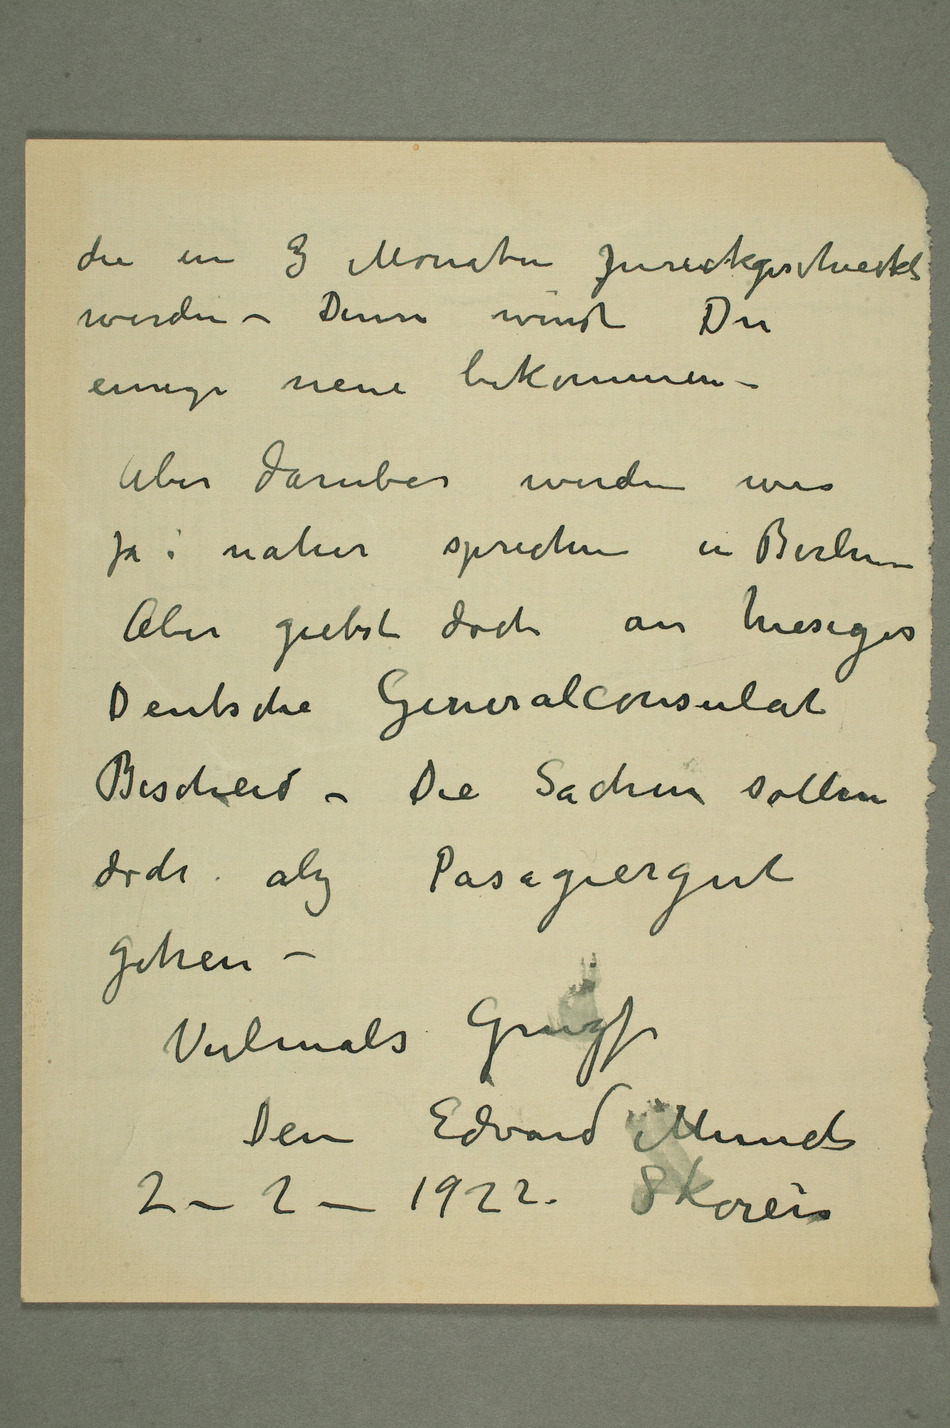 die in 3 Monaten zurückgeschickt
werden – Denn wirdst Du
einige neue bekommen –
Aber daruber werden wir
ja: naher sprechen in Berlin –
Aber giebst doch an hiesiges
Deutsche Generalconsulat
Bescheid – Die Sachen sollen
doch als Pasagiergut
gehen –
Vielmals Grüße
Dein Edvard Munch
2 – 2 – 1922. Skøien